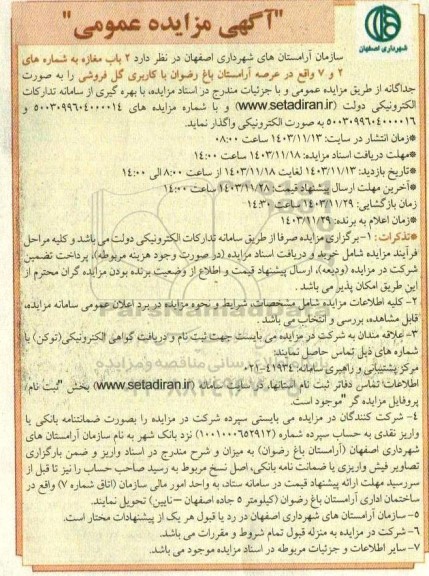 "آگهی مزایده عمومی"
شهرداری اصفهان
سازمان آرامستان های شهرداری اصفهان در نظر دارد ۲ باب مغازه به شماره های
۲ و ۷ واقع در عرصه آرامستان باغ رضوان با کاربری گل فروشی را به صورت
جداگانه از طریق مزایده عمومی و با جزئیات مندرج در اسناد مزایده، با بهره گیری از سامانه تدارکات
الکترونیکی دولت (www.setadiran.ir) و با شماره مزایده های ۵۰۰۳۰۹۹۶۰۴۰۰۰۰۱۴ و
۵۰۰۳۰۹۹۶۰۴۰۰۰۰۱۶ به صورت الکترونیکی واگذار نماید.
*زمان انتشار در سایت: ۱۴۰۳/۱۱/۱۳ ساعت ۰۸:۰۰
*مهلت دریافت اسناد مزایده: ۱۴۰۳/۱۱/۱۸ ساعت ۱۴:۰۰
*تاریخ بازدید: ۱۴۰۳/۱۱/۱۳ لغایت ۱۴۰۳/۱۱/۱۸ از ساعت ۸:۰۰ الی ۱۴:۰۰
*آخرین مهلت ارسال پیشنهاد قیمت: ۱۴۰۳/۱۱/۲۸ ساعت ۱۴:۰۰
زمان بازگشایی: ۱۴۰۳/۱۱/۲۹ ساعت ۱۴:۳۰
*زمان اعلام به برنده: ۱۴۰۳/۱۱/۲۹
*تذکرات: ۱- برگزاری مزایده صرفا از طریق سامانه تدارکات الکترونیکی دولت می باشد و کلیه مراحل
فرآیند مزایده شامل خرید و دریافت اسناد مزایده (در صورت وجود هزینه مربوطه)، پرداخت تضمین
شرکت در مزایده (ودیعه)، ارسال پیشنهاد قیمت و اطلاع از وضعیت برنده بودن مزایده گران محترم از
این طریق امکان پذیر می باشد.
۲- کلیه اطلاعات مزایده شامل مشخصات، شرایط و نحوه مزایده در برد اعلان عمومی سامانه مزایده،
قابل مشاهده، بررسی و انتخاب می باشد.
۳- علاقه مندان به شرکت در مزایده می بایست جهت ثبت نام و دریافت گواهی الکترونیکی(توکن) با
شماره های ذیل تماس حاصل نمایند:
مرکز پشتیبانی و راهبری سامانه: ۴۱۹۳۴-۰۲۱
اطلاعات تماس دفاتر ثبت نام استانها، در سایت سامانه (www.setadiran.ir) بخش "ثبت نام/
پروفایل مزایده گر" موجود است.
۴- شرکت کنندگان در مزایده می بایستی سپرده شرکت در مزایده را بصورت ضمانتنامه بانکی یا
واریز نقدی به حساب سپرده شماره (۱۰۰۱۰۰۰۶۵۲۹۱۲) نزد بانک شهر به نام سازمان آرامستان های
شهرداری اصفهان (آرامستان باغ رضوان) به میزان و شرح مندرج در اسناد واریز و ضمن بارگزاری
تصاویر فیش واریزی یا ضمانت نامه بانکی، اصل نسخ مربوط به رسید صاحب حساب را نیز تا قبل از
سررسید مهلت ارائه پیشنهاد قیمت در سامانه ستاد، به واحد امور مالی سازمان (اتاق شماره ۷) واقع در
ساختمان اداری آرامستان باغ رضوان (کیلومتر ۵ جاده اصفهان –نایین) تحویل نمایند.
۵- سازمان آرامستان های شهرداری اصفهان در رد یا قبول هر یک از پیشنهادات مختار است.
۶- شرکت در مزایده به منزله قبول تمام شروط و مقررات می باشد.
۷- سایر اطلاعات و جزئیات مربوطه در اسناد مزایده موجود می باشد.